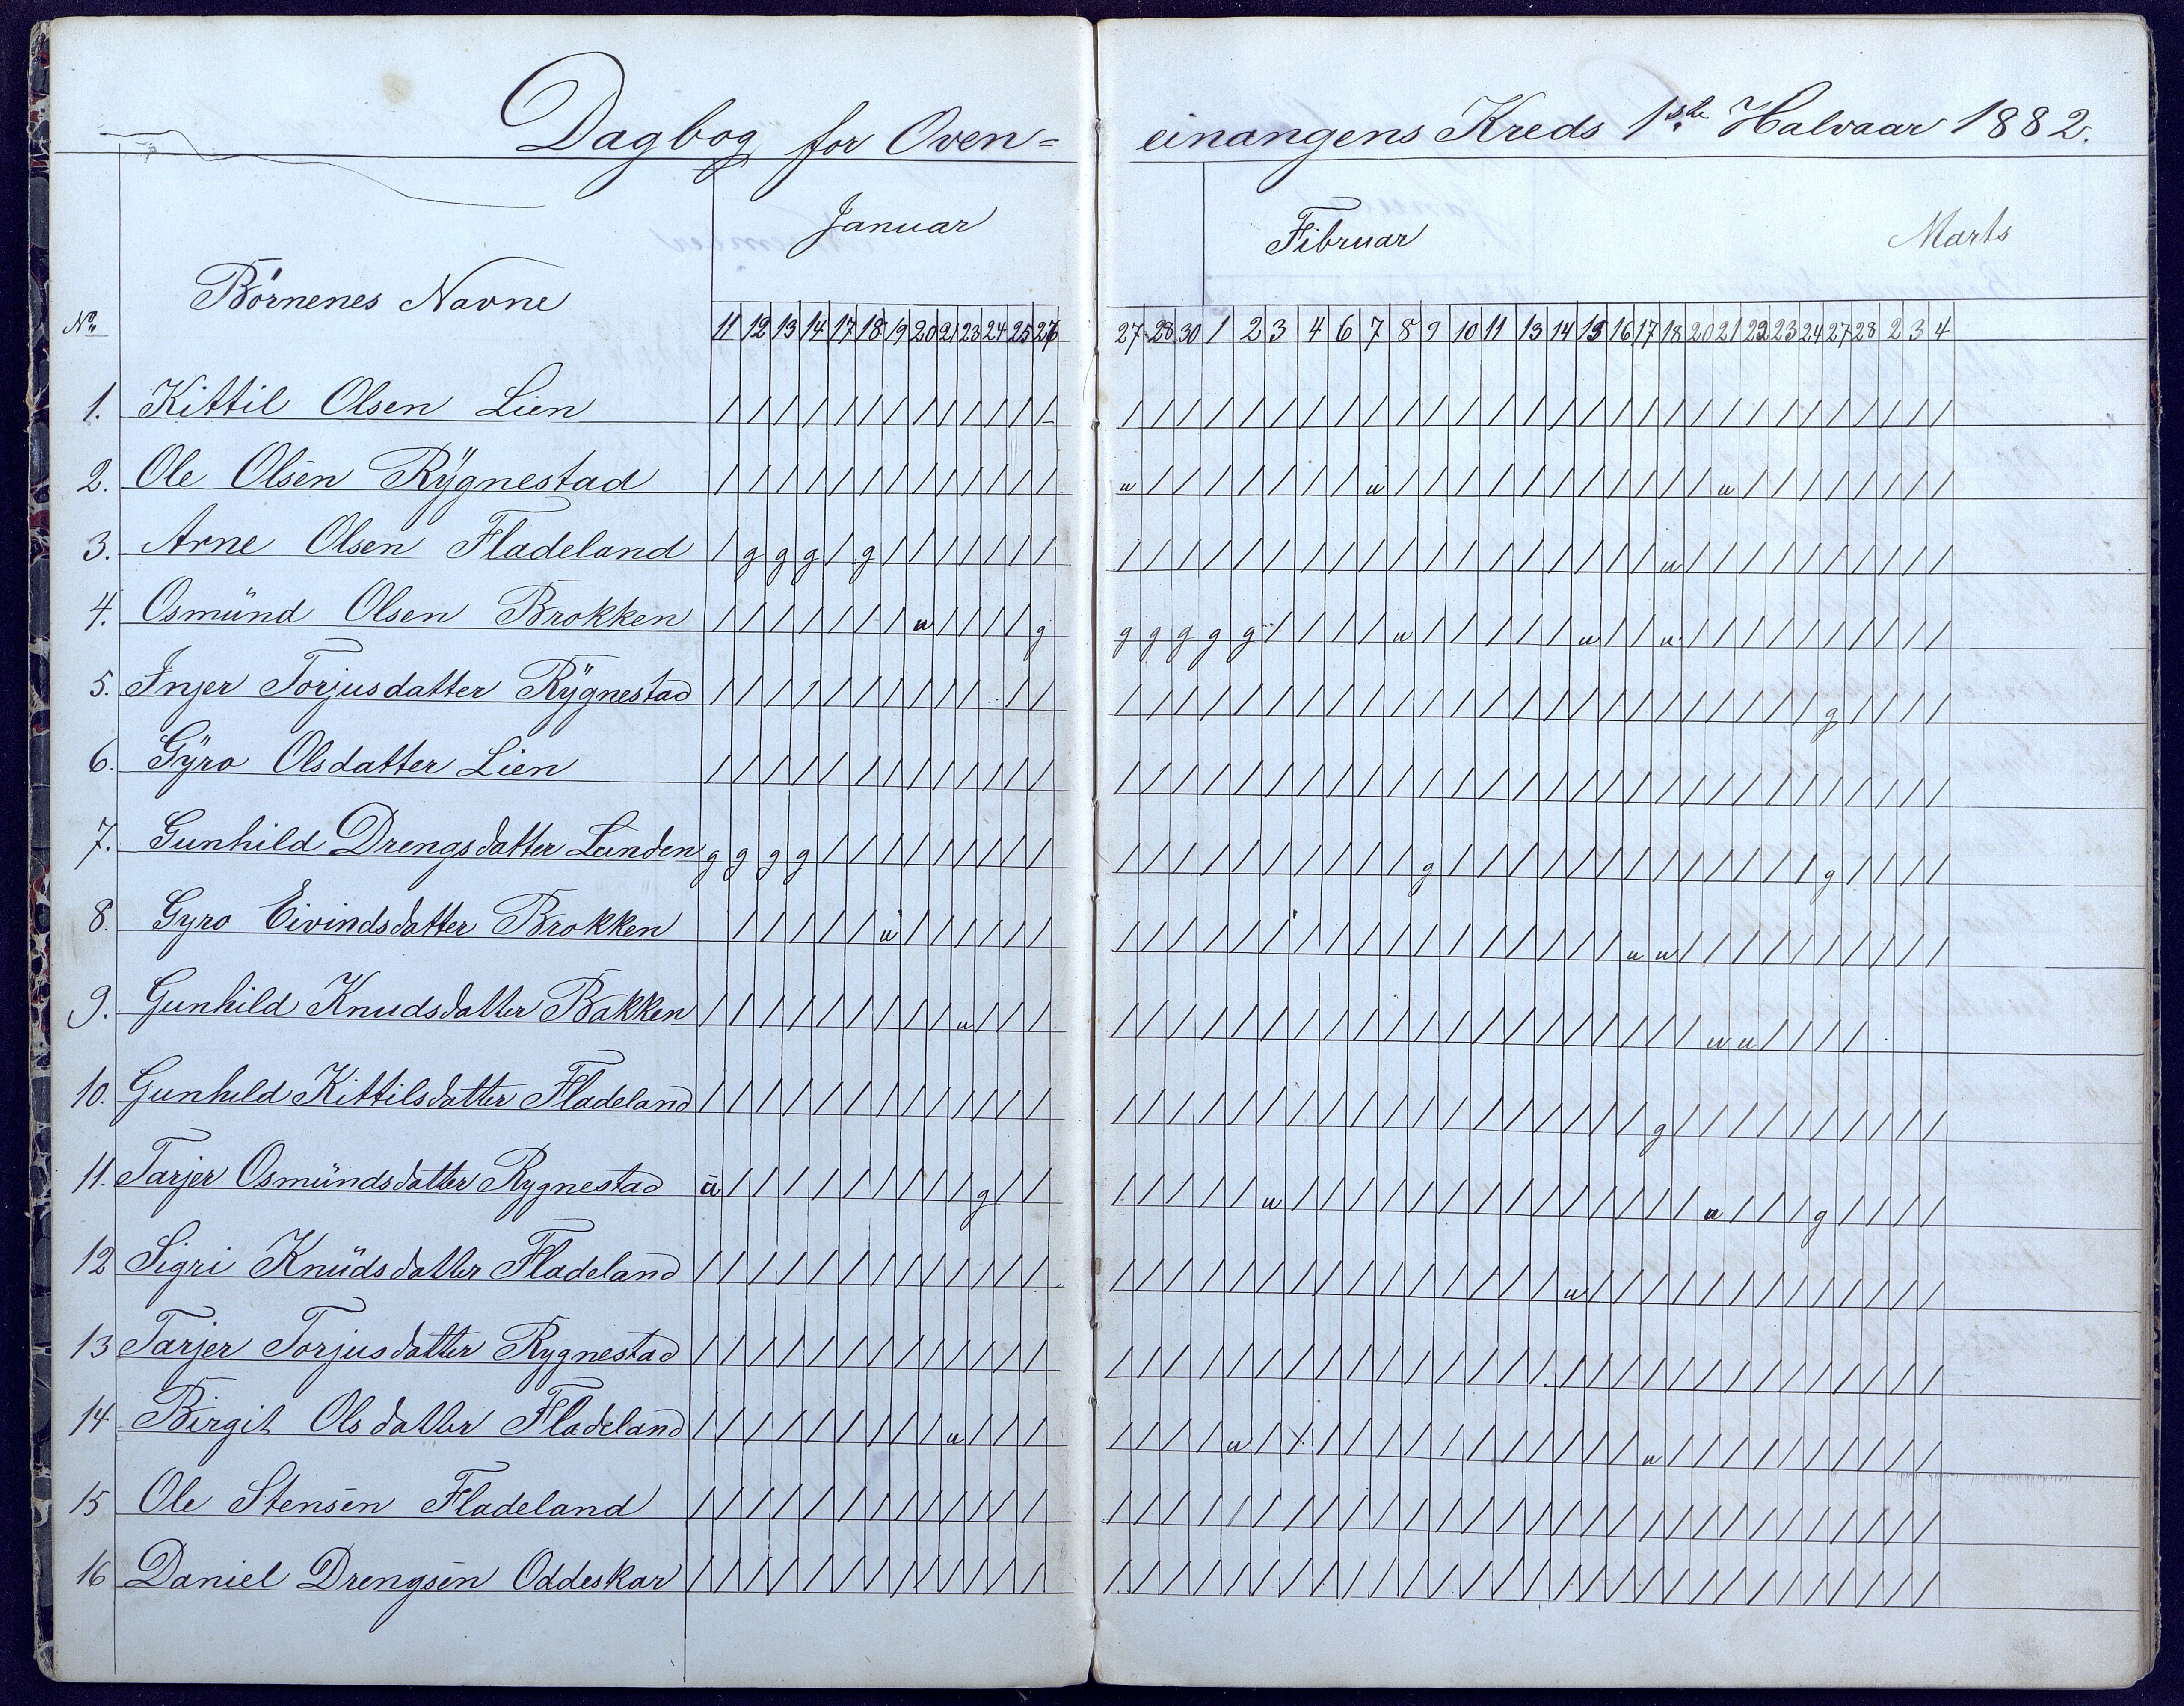 Dagbog for Oven=
einangens Kreds 1ste Halvaar 1882.
Januar
Fibruar Marts
No Börnenes Navne
11 12 13 14 17 18 19 20 21 23 24 25 26
27 28 30 1 2 3 4 6 7 8 9 10 11 13 14 15 16 17 18 20 21 22 23 24 27 28 2 3 4
1. Kittil Olsen Lien / / / / / / / / / / / / /
/ / / / / / / / / / / / / / / / / / / / / / / / / / / / /
2. Ole Olsen Rÿgnestad / / / / / / / / / / / / /
u / / / / / / / u / / / / / / / / / / / u / / / / / / / /
3. Arne Olsen Fladeland / g g g / g / / / / / / /
/ / / / / / / / / / / / / / / / / / u / / / / / / / / / /
4. Osmünd Olsen Brokken / / / / / / / u / / / / g
g g g g g / / / / u / / / / / u / / u / / / / / / / / / /
5. Injer Torjusdatter Rÿgnestad / / / / / / / / / / / /
/ / / / / / / / / / / / / / / / / / / / / / / / g / / / /
6. Gÿro Olsdatter Lien / / / / / / / / / / / / /
/ / / / / / / / / / / / / / / / / / / / / / / / / / / / /
7. Gunhild Drengsdatter Lunden g g g g / / / / / / / / /
/ / / / / / / / / / g / / / / / / / / / / / / / g / / / /
8. Gyro Eivindsdatter Brokken / / / / / u / / / / / /
/ / / / / / / / / / / / / / / / / u u / / / / / / / / / /
9. Gunhild Knudsdatter Bakken / / / / / / / / / u / / /
/ / / / / / / / / / / / / / / / / / / / u u / / / /
10. Gunhild Kittilsdatter Fladeland / / / / / / / / / / / / /
/ / / / / / / / / / / / / / / / / / g / / / / / / / / / /
11. Tarjer Osmündsdatter Rygnestad u / / / / / / / / / g / /
/ / / / / u / / / / / / / / / / / / / / u / / / g / / / /
12 Sigri Knüdsdatter Fladeland / / / / / / / / / / / / /
/ / / / / / / / / / / / / / / u / / / / / / / / / / / / /
13 Tarjer Torjusdatter Rygnestad / / / / / / / / / / / / /
/ / / / / / / / / / / / / / / / / / / / / / / / / / / / /
14 Birgit Olsdatter Fladeland / / / / / / / / / u / / /
/ / / / u / / / / / / / / / / / / / u / / / / / / / / / /
15 Ole Stensen Fladeland / / / / / / / / / / / / /
/ / / / / / / / / / / / / / / / / / / / / / / / / / / / /
16 Daniel Drengsen Oddeskar / / / / / / / / / / / / /
/ / / / / / / / / / / / / / / / / / / / / / / / / / / / /